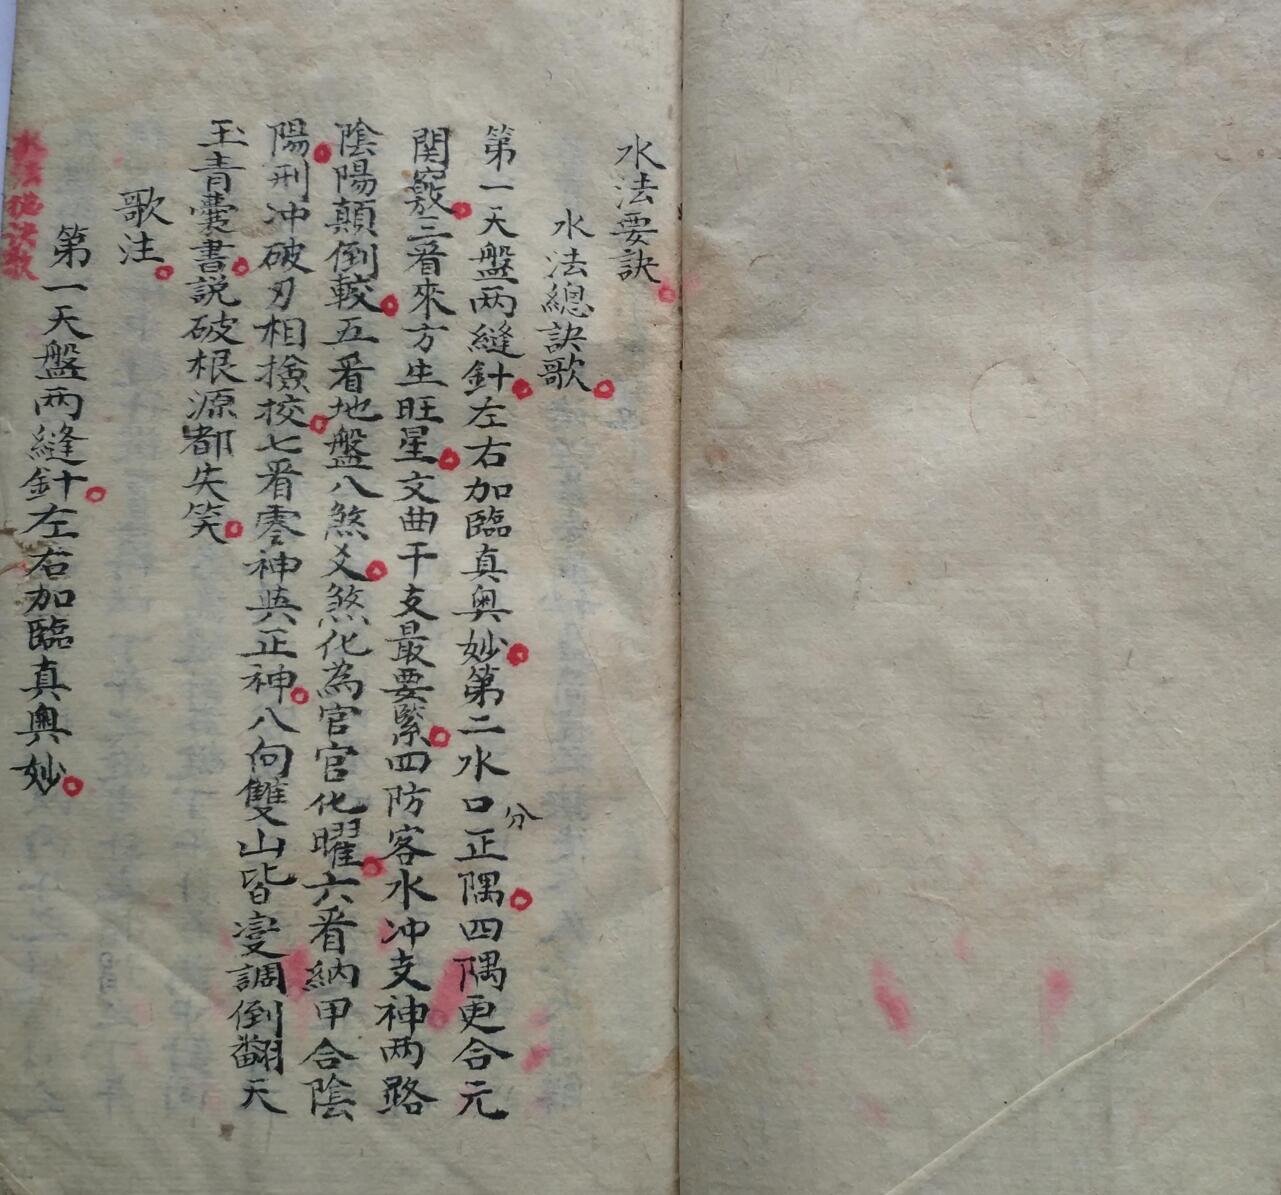 水法要訣
水法總訣歌
第一天盤两縫針左右加臨真奥妙第二水口分正隅四隅更合元
関竅三看來方生旺星文曲干支最要緊四防客水冲支神两路
陰陽顛倒較五看地盤八煞爻煞化為官官化曜六看納甲合陰
陽刑冲破刃相撿挍七看零神與正神八向雙山皆变調倒翻天
玉青囊書説破根源都失笑
歌注
第一天盤两縫針左右加臨真奥妙
水法總訣歌